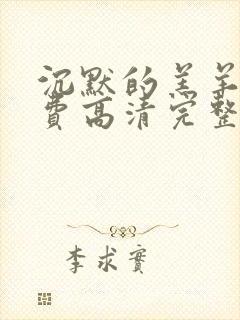 沉默的羔羊
费高清完整
李求實